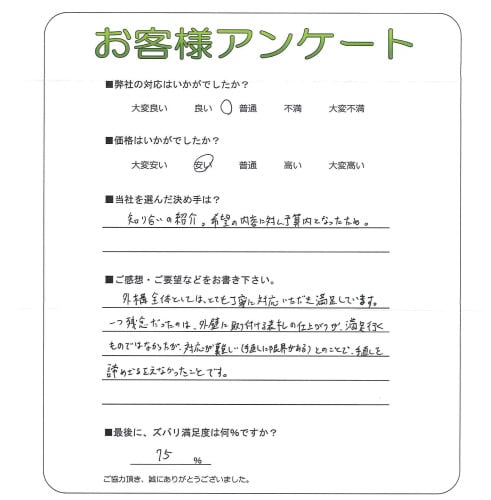 お客様アンケート
■弊社の対応はいかがでしたか？
大変良い 良い 普通 不満 大変不満
■価格はいかがでしたか？
大変安い 安い 普通 高い 大変高い
■当社を選んだ決め手は？
知り合いの紹介。希望の内容に対し予算内となったため。
■ご感想・ご要望などをお書き下さい。
外構全体としては、とても丁寧に対応いただき満足しています。
一つ残念だったのは、外壁に取付ける表札の仕上がりが、満足行く
ものではなかったが、対応が難しい(手直しに限界がある)とのことで、手直しを
諦めざるえなかったことです。
■最後に、ズバリ満足度は何%ですか？
75 %
ご協力頂き、誠にありがとうございました。